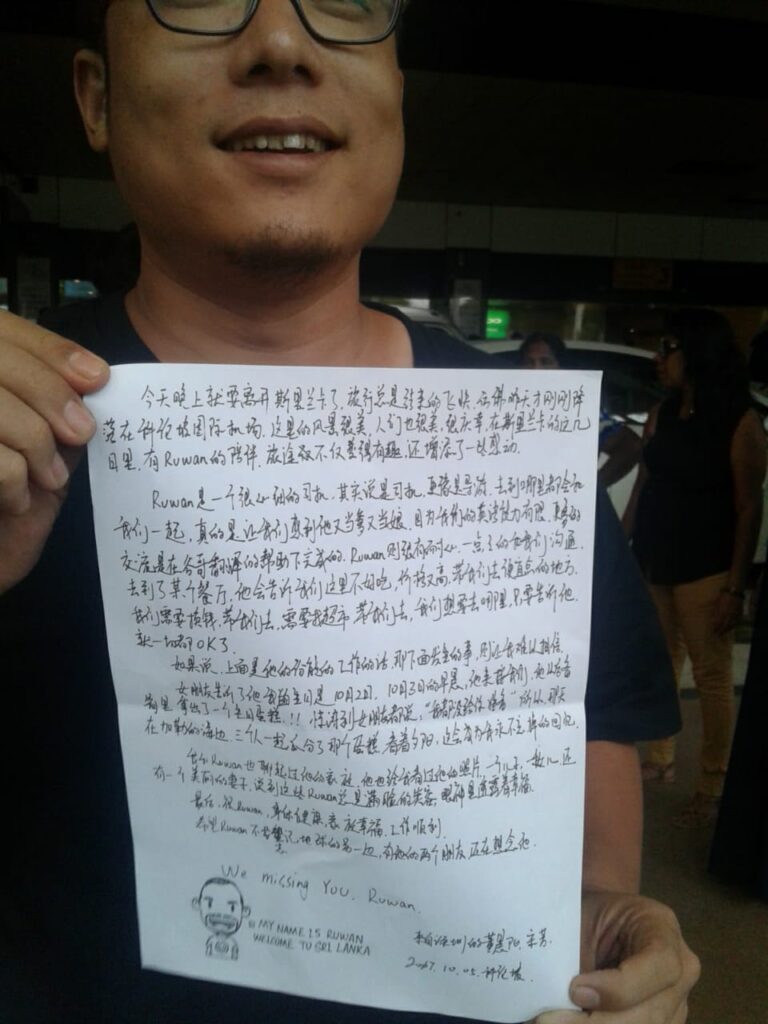 今天晚上就要离开斯里兰卡了，旅行总是过的飞快，仿佛昨天才刚刚降
落在科伦坡国际机场，这里的风景很美，人们也很美，很庆幸，在斯里兰卡的这几
日里，有Ruwan的陪伴，旅途不仅变得有趣，还增添了一些感动。
Ruwan是一个很仔细的司机，其实说是司机，更像是导游，去到哪里都会和
我们一起，真的是让我们感到他又当爹又当娘，因为我们的英语能力有限，更多的
交流是在谷哥翻译的帮助下完成的，Ruwan则很有耐心，一点点的和我们沟通，
去到了某个餐厅，他会告诉我们这里不好吃，价格又高，带我们去便宜的地方，
我们需要换钱，带我们去，需要找超市，带我们去，我们想要去哪里，只要告诉他，
就一切都OK了
如果说，上面是他的份内的工作的话，那下面发生的事，则让我难以相信，
女朋友告诉了他我的生日是10月2日，10月3日的早晨，他来接我们，他从后备
箱里拿出了一个生日蛋糕，!! 惊讶到女朋友都说，“我都没给你准备”所以，那天
在加勒的海边，三个人一起瓜分了那个蛋糕，看着夕阳，这会成为我永不忘掉的回忆，
我和Ruwan也聊起过他的家庭，他也给我看过他的照片，一个儿子，一个女儿，还
有一个美丽的妻子，谈到这些Ruwan总是满脸的笑容，眼神里透露着幸福
最后，祝Ruwan，身体健康，家庭幸福，工作顺利，
希望Ruwan不要忘记，地球的另一边，有他的两个朋友，还在想念他
We missing You, Ruwan.
MY NAME IS RUWAN
WELCOME TO SRI LANKA
来自深圳的 宋芳
10.05. 科伦坡